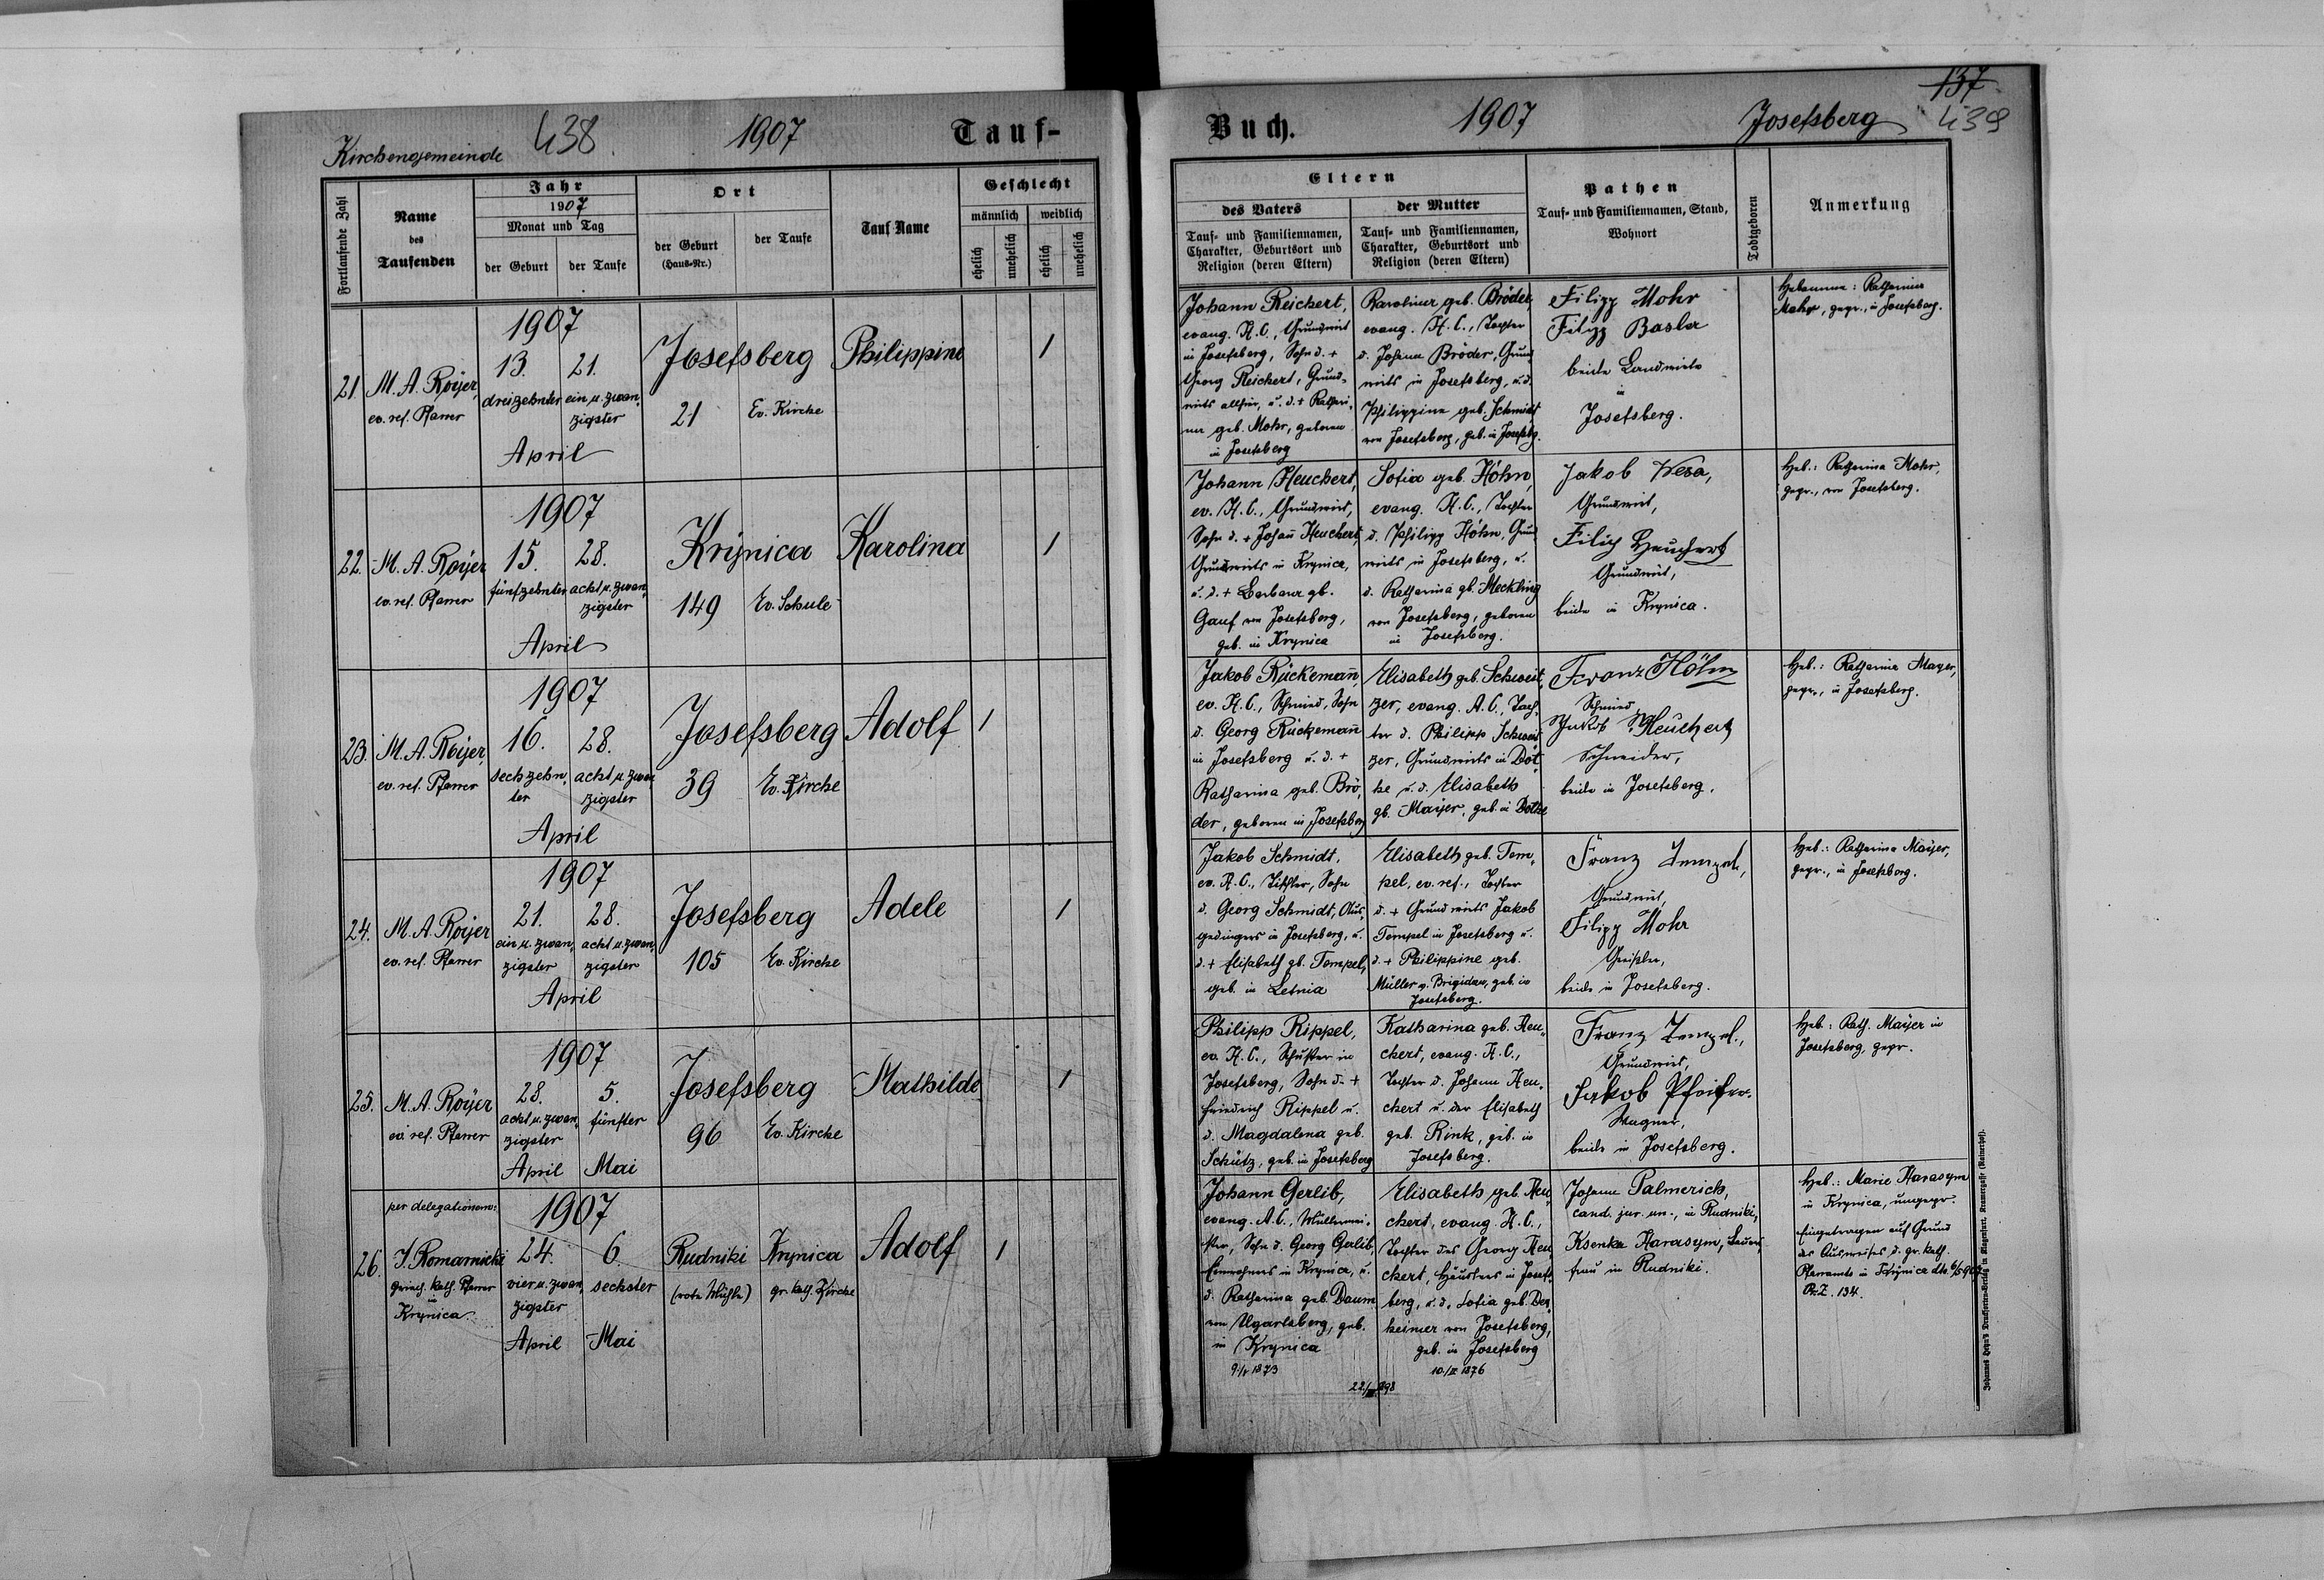 Kirchengemeinde 438 1907 Tauf-
Fortlaufende Zahl
Name
des
Taufenden
Jahr
1907
Monat und Tag
der Geburt
der Taufe
Ort
der Geburt
(Haus-Nr.)
der Taufe
Tauf-Name
Geschlecht
männlich
weiblich
ehelich
unehelich
ehelich
unehelich
21. M. A. Royer,
ev. ref. Pfarrer
1907
13. 21.
dreizehnter ein u. zwan-
zigster
April
Josefsberg
21 Ev. Kirche
Philippine
1
22. M. A. Royer
ev. ref. Pfarrer
1907
15. 28.
fünfzehnter acht u. zwan-
zigster
April
Krynica
149 Ev. Schule
Karolina
1
23. M. A. Royer,
ev. ref. Pfarrer
1907
16. 28.
sechzehn- acht u. zwan-
ter zigster
April
Josefsberg
39 Ev. Kirche
Adolf
1
24. M. A. Royer
ev. ref. Pfarrer
1907
21. 28.
ein u. zwan- acht u. zwan-
zigster zigster
April
Josefsberg
105 Ev. Kirche
Adele
1
25. M. A. Royer
ev. ref. Pfarrer
1907
28. 5.
acht u. zwan- fünfter
zigster
April Mai
Josefsberg
96 Ev. Kirche
Mathilde
1
per delegationem:
26. J. Romanicki
griech. kath. Pfarrer
in
Krynica
1907
24. 6.
vier u. zwan- sechster
zigster
April Mai
Rudniki Krynica
(rote Mühle) gr. kath. Kirche
Adolf
1
Buch. 1907 Josefsberg 137
439
Eltern
des Vaters
Tauf- und Familiennamen,
Charakter, Geburtsort und
Religion (deren Eltern)
der Mutter
Tauf- und Familiennamen,
Charakter, Geburtsort und
Religion (deren Eltern)
Pathen
Tauf- und Familiennamen, Stand,
Wohnort
Todtgeboren
Anmerkung
Johann Reichert,
evang. H. C., Grundwirt
in Josefsberg, Sohn d. +
Georg Reichert, Grund-
wirts allhier, u. d. + Kathari-
na geb. Mohr, geboren
in Josefsberg
Karolina geb. Bröder,
evang. H. C., Tochter
d. Johann Bröder, Grund-
wirts in Josefsberg, u. d.
Philippine geb. Schmidt
von Josefsberg, geb. in Josefsbg.
Filipp Mohr
Filipp Basler
beide Landwirte
in
Josefsberg.
Hebamme: Katharina
Mohr, gepr., in Josefsberg.
Johann Heuchert,
ev. H. C., Grundwirt,
Sohn d. + Johann Heuchert,
Grundwirts in Krynica,
u. d. + Barbara gb.
Gauf von Josefsberg,
geb. in Krynica
Sofia geb. Höhn,
evang. H. C., Tochter
d. Philipp Höhn, Grund-
wirts in Josefsberg, u.
d. Katharina gb. Meckling
von Josefsberg, geboren
in Josefsberg.
Jakob Wesa,
Grundwirt,
Filip Heuchert
Grundwirt,
beide in Krynica.
Heb.: Katharina Mohr,
gepr., von Josefsberg.
Jakob Rückemann,
ev. H. C., Schmied, Sohn
d. Georg Rückemann
in Josefsberg u. d. +
Katharina geb. Brö-
der, geboren in Josefsberg
Elisabeth geb. Schweit-
zer, evang. A. C., Toch-
ter d. Philipp Schweit-
zer, Grundwirts in Dot-
ke u. d. Elisabeth
gb. Maijer, geb. in Dotke
Franz Höhn
Schmied
Jakob Heuchert
Schneider,
beide in Josefsberg.
Heb.: Katharina Mayer,
gepr., in Josefsberg.
Jakob Schmidt,
ev. H. C., Tischler, Sohn
d. Georg Schmidt, Aus-
gedingers in Josefsberg, u.
d. + Elisabeth gb. Tempel,
geb. in Letnia
Elisabeth geb. Tem-
pel, ev. ref., Tochter
d. + Grundwirts Jakob
Tempel in Josefsberg u.
d. + Philippine geb.
Müller v. Brigidau, geb. in
Josefsberg.
Franz Tempel,
Grundwirt,
Filipp Mohr
Greißler,
beide in Josefsberg.
Heb.: Katharina Maijer,
gepr., in Josefsberg.
Philipp Rippel,
ev. H. C., Schuster in
Josefsberg, Sohn d. +
Friedrich Rippel u.
d. Magdalena geb.
Schütz, geb. in Josefsberg
Katharina geb. Heu-
chert, evang. H. C.,
Tochter d. Johann Heu-
chert u. der Elisabeth
geb. Rink, geb. in
Josefsberg.
Franz Tempel.,
Grundwirt,
Jakob Pfeifer.
Wagner,
beide in Josefsberg.
Heb.: Kath. Maijer in
Josefsberg, gepr.
Johann Gerlib,
evang. A. C., Müllermei-
ster, Sohn d. Georg Gerlib,
Einwohners in Krynica, u.
d. Katharina geb. Daum
von Ugartsberg, geb.
in Krynica
9./V 1873
Elisabeth geb. Heu-
chert, evang. H. C.,
Tochter des Georg Heu-
chert, Häuslers in Josefs-
berg, u. d. Sofia geb. Der-
heimer von Josefsberg,
geb. in Josefsberg
10./II 1876
Johann Palmerich,
cand. jur. un., in Rudniki,
Ksenka Harasym, Bauers-
frau in Rudniki.
Heb.: Marie Harasym
in Krynica, ungepr.
Eingetragen auf Grund
des Ausweises d. gr. kath.
Pfarramts in Krynica dto. 6/5 907
Pr. Z. 134.
Johannes Heyn's Drucksorten-Verlag in Klagenfurt, Kramergasse (Rainerhof).